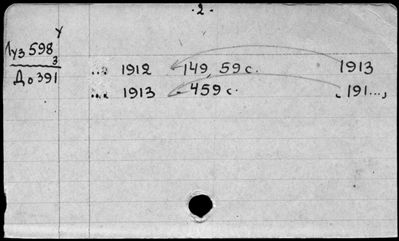 - 2 -
Луз 598
у
3
До 391
... 1912 - 149, 59 с. 1913
... 1913 - 459 с. , 191...,